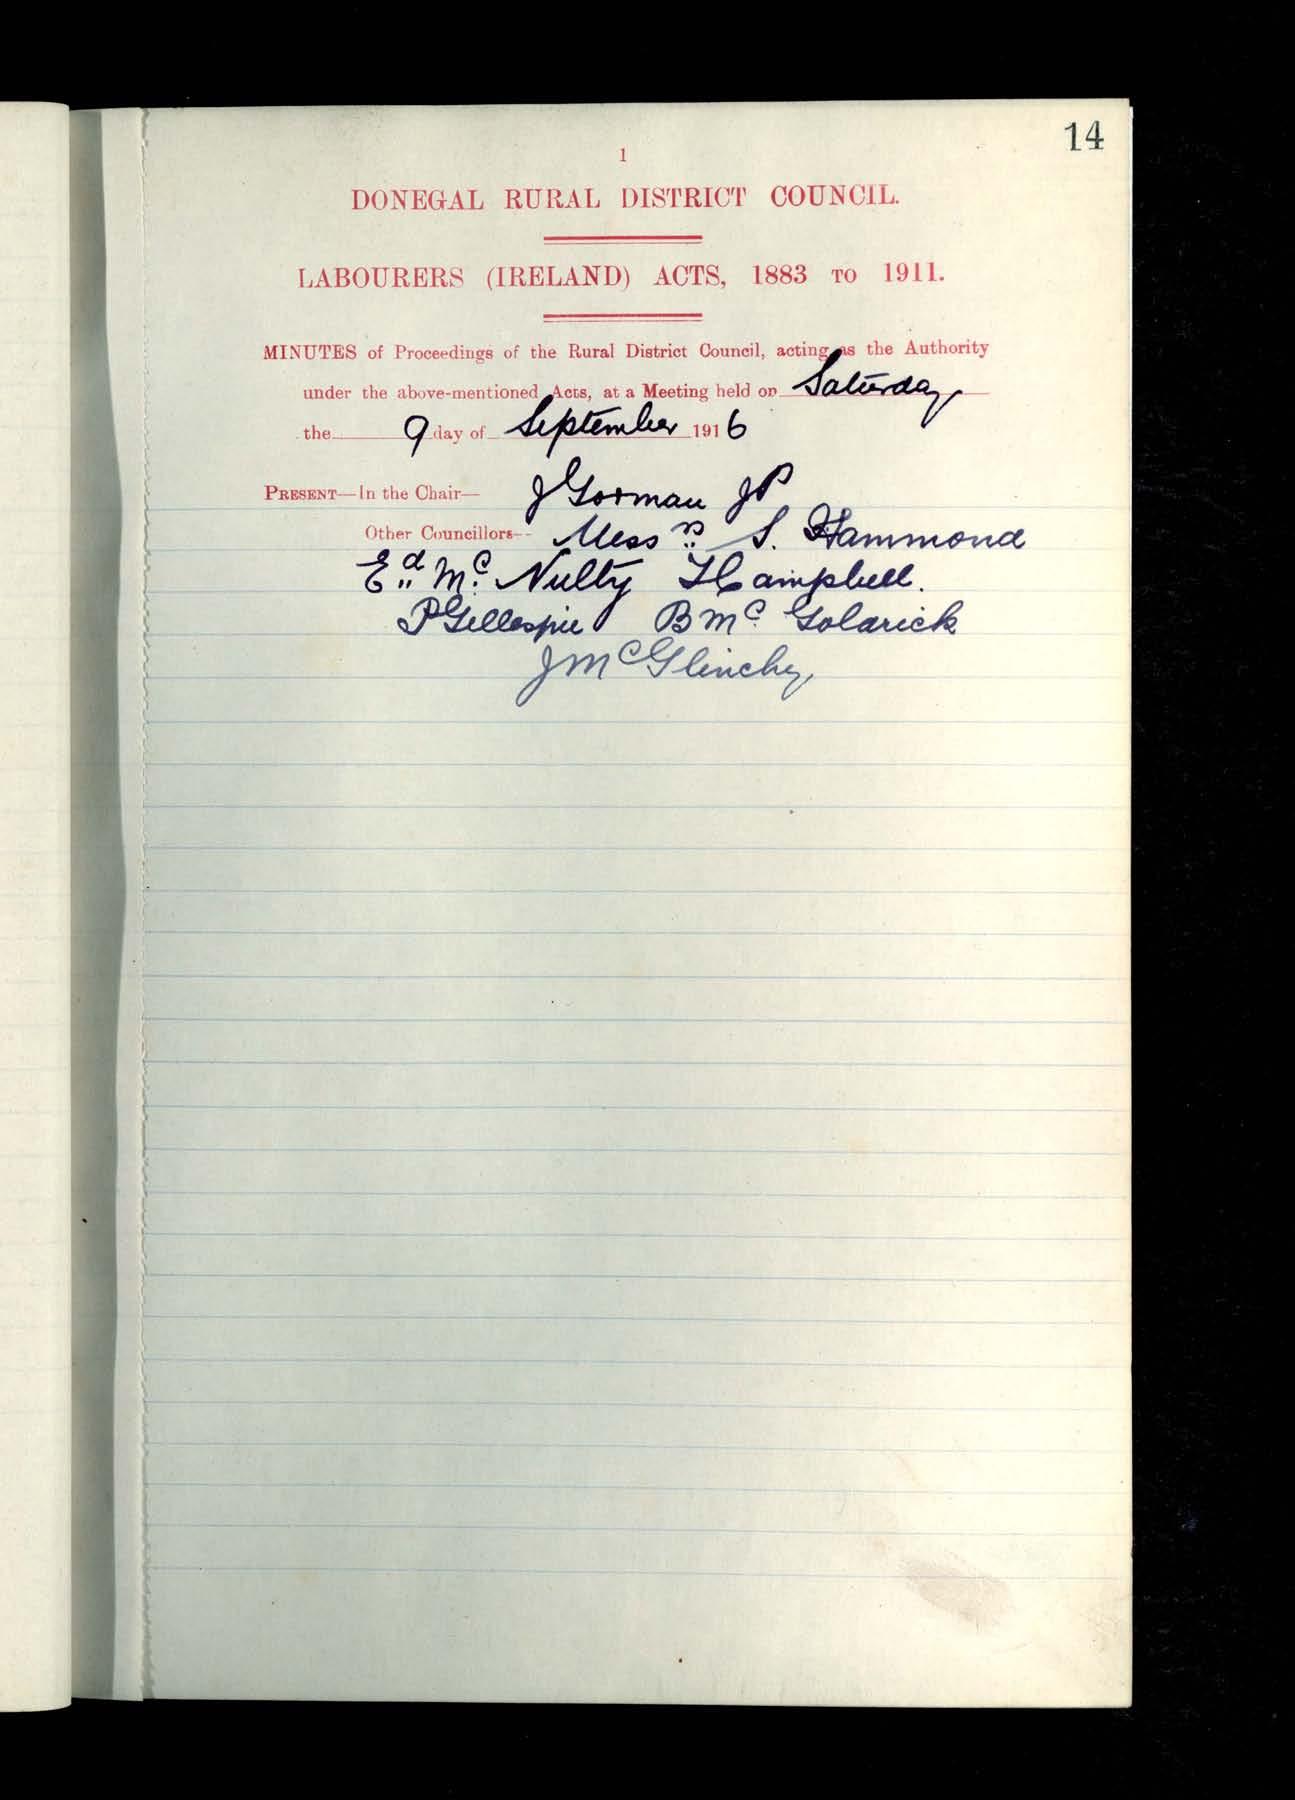 14
1
DONEGAL RURAL DISTRICT COUNCIL.
LABOURERS (IRELAND) ACTS, 1883 TO 1911.
MINUTES of Proceedings of the Rural District Council, acting as the Authority
under the above-mentioned Acts, at a Meeting held on Saturday
the 9 day of September 1916
PRESENT—In the Chair— J Gorman JP
Other Councillors-- Messrs S. Hammond
Ed Mc Nulty J Campbell.
P Gillespie B Mc Golarick
J McGlinchy